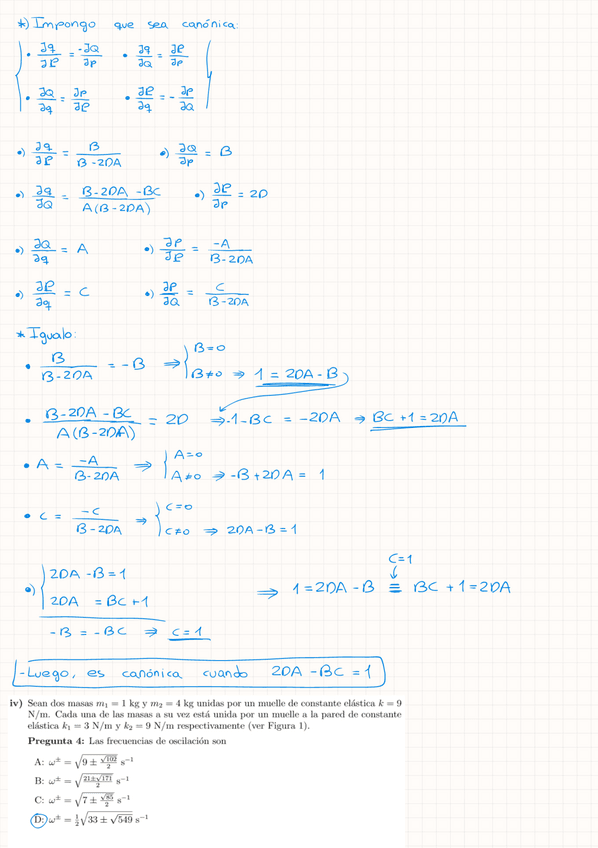 *) Impongo que sea canónica:
• ∂q/∂P = -∂Q/∂p • ∂q/∂Q = ∂P/∂p
• ∂Q/∂q = ∂p/∂P • ∂P/∂q = - ∂p/∂Q
•) ∂q/∂P = B/(B-2DA) •) ∂Q/∂p = B
•) ∂q/∂Q = (B-2DA-BC)/(A(B-2DA)) •) ∂P/∂p = 2D
•) ∂Q/∂q = A •) ∂p/∂P = -A/(B-2DA)
•) ∂P/∂q = C •) ∂p/∂Q = C/(B-2DA)
* Igualo:
• B/(B-2DA) = -B ⇒ { B=0
B≠0 ⇒ 1 = 2DA-B
• (B-2DA-BC)/(A(B-2DA)) = 2D ⇒ -1-BC = -2DA ⇒ BC+1=2DA
• A = -A/(B-2DA) ⇒ { A=0
A≠0 ⇒ -B+2DA = 1
• C = -C/(B-2DA) ⇒ { C=0
C≠0 ⇒ 2DA-B=1
C=1
↓
•) { 2DA -B=1 ⇒ 1=2DA-B ≡ BC+1=2DA
2DA = BC+1
-B = -BC ⇒ C=1
-Luego, es canónica cuando 2DA-BC=1
iv) Sean dos masas m₁ = 1 kg y m₂ = 4 kg unidas por un muelle de constante elástica k = 9
N/m. Cada una de las masas a su vez está unida por un muelle a la pared de constante
elástica k₁ = 3 N/m y k₂ = 9 N/m respectivamente (ver Figura 1).
Pregunta 4: Las frecuencias de oscilación son
A: ω± = √(9 ± √102/2) s⁻¹
B: ω± = √((21±√171)/2) s⁻¹
C: ω± = √(7 ± √85/2) s⁻¹
D: ω± = ½√(33 ± √549) s⁻¹